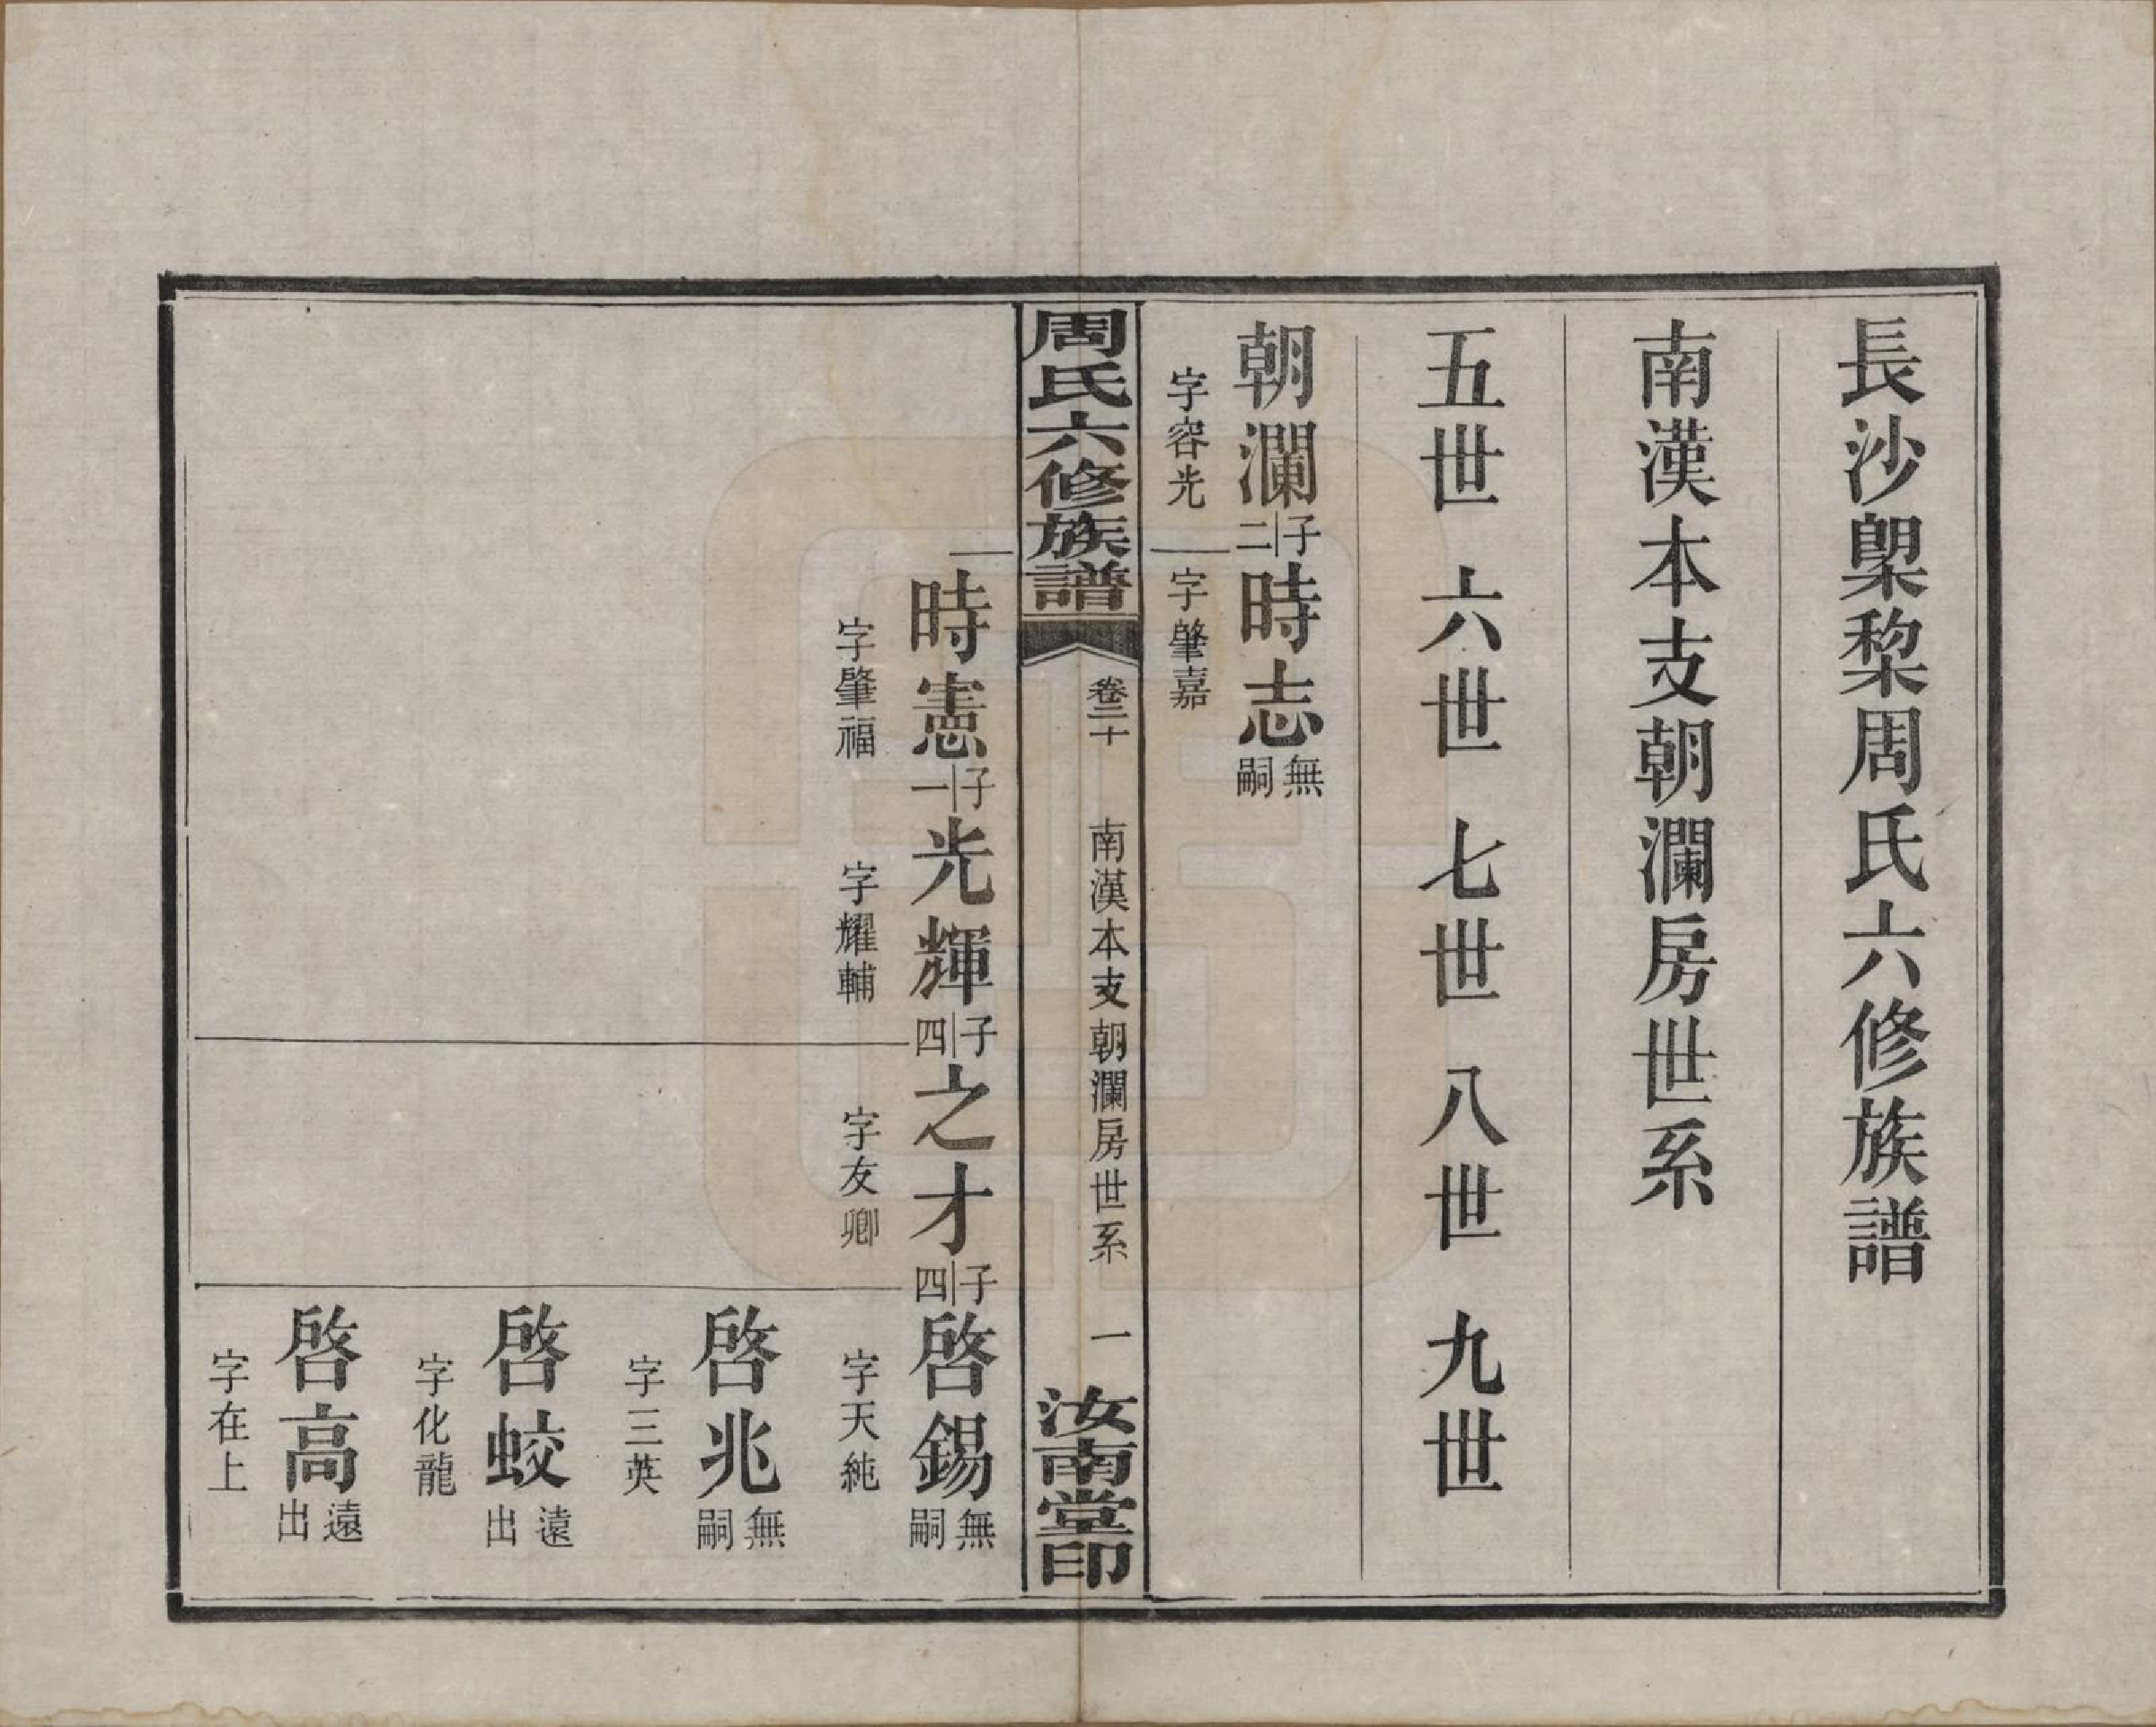 長沙㮛棃周氏六修族譜
南漢本支朝瀾房世系
五世 六世 七世 八世 九世
朝瀾 子二 時志 無嗣
字容光 字肇嘉
周氏六修族譜 卷二十 南漢本支朝瀾房世系 一 汝南堂印
時憲 子一 光輝 子四 之才 子四 啓錫 無嗣
字肇福 字耀輔 字友卿 字天純
啓兆 無嗣
字三英
啓蛟 遠出
字化龍
啓高 遠出
字在上